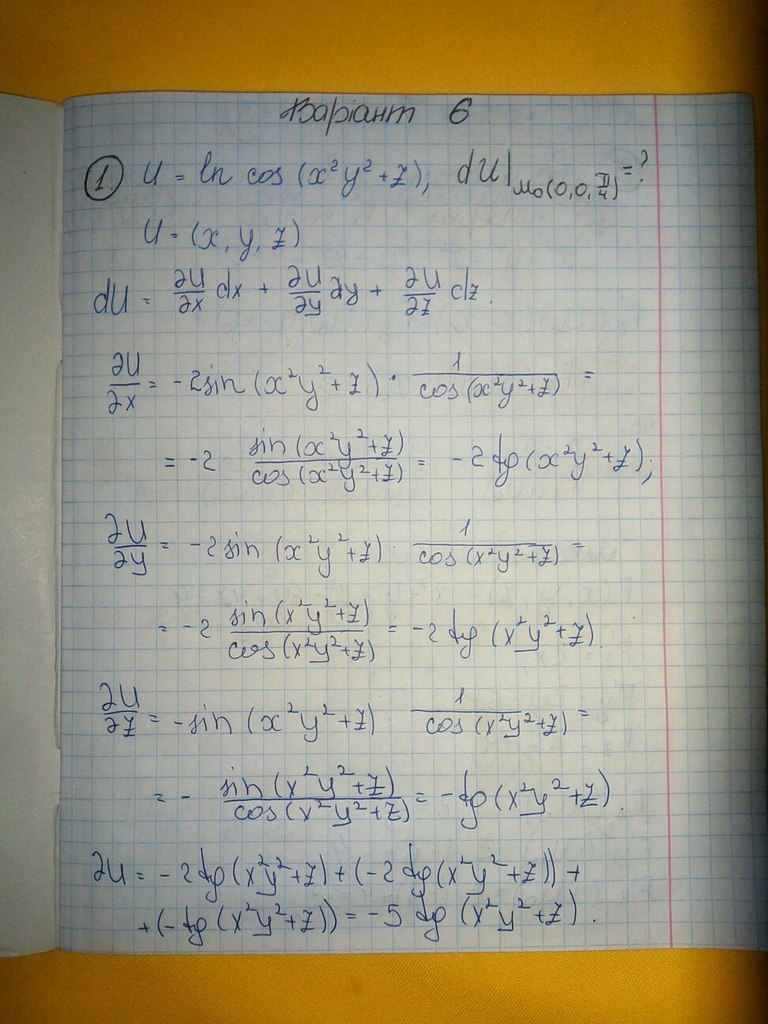 Варіант 6
① U = ln cos (x²y² + z), dU|ₘ₀(0, 0, π/4) = ?
U = (x, y, z)
dU = ∂U/∂x dx + ∂U/∂y ∂y + ∂U/∂z dz.
∂U/∂x = -2sin (x²y² + z) · 1/cos (x²y² + z) =
= -2 sin (x²y² + z)/cos (x²y² + z) = -2 tg (x²y² + z);
∂U/∂y = -2sin (x²y² + z) · 1/cos (x²y² + z) =
= -2 sin (x²y² + z)/cos (x²y² + z) = -2 tg (x²y² + z)
∂U/∂z = -sin (x²y² + z) 1/cos (x²y² + z) =
= - sin (x²y² + z)/cos (x²y² + z) = -tg (x²y² + z).
∂U = -2 tg (x²y² + z) + (-2 tg (x²y² + z)) +
+ (-tg (x²y² + z)) = -5 tg (x²y² + z).